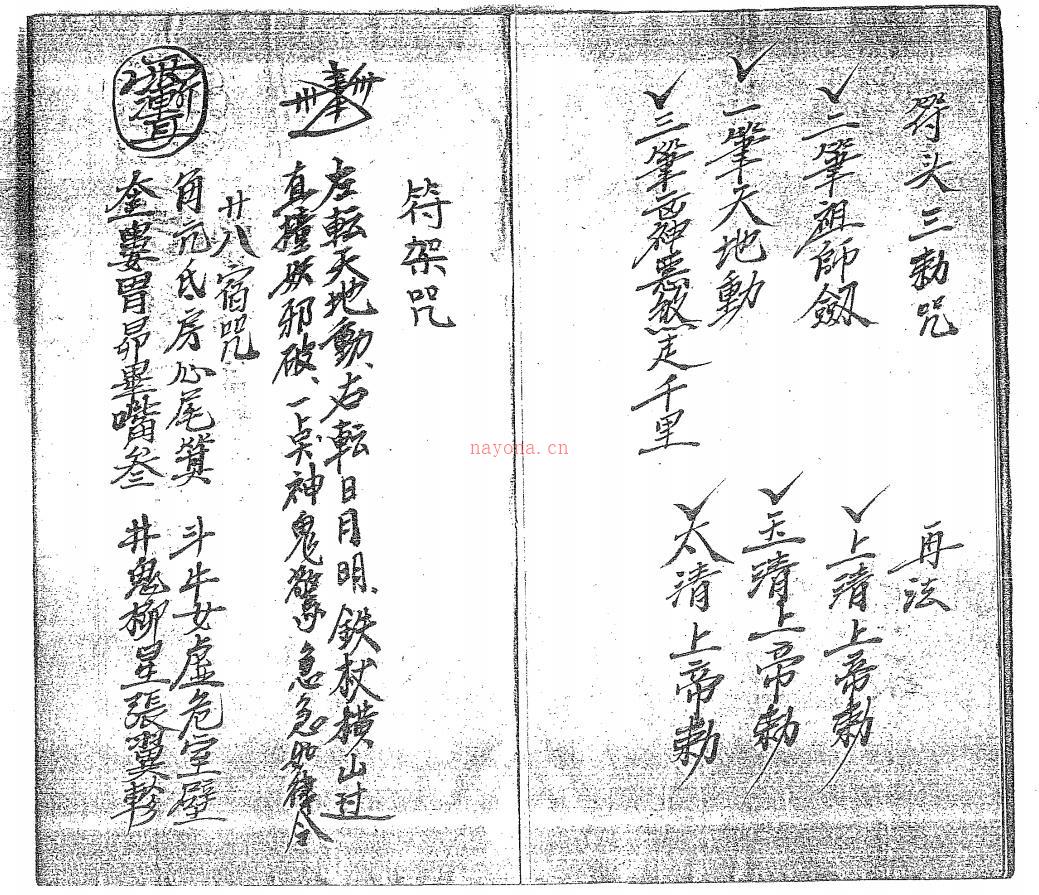 符头三勅咒
二筆祖師劔
一筆天地動
三筆凶神悪煞走千里
再法
上清上帝勅
玉清上帝勅
太清上帝勅
符架咒
左転天地動、右転日月明、鉄杖横山过
直撞妖邪破、一点神鬼驚急急如律令
廿八宿咒
角亢氐房心尾箕 斗牛女虚危室壁
奎婁胃昴畢嘴叄 井鬼柳星張翼軫
nayona.cn